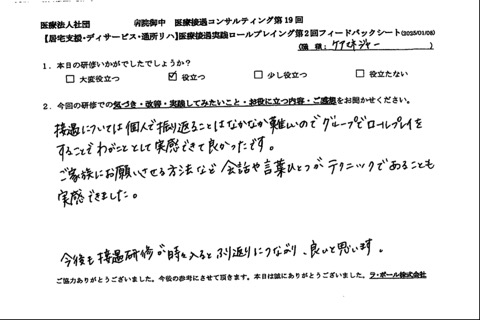 医療法人社団　　　病院御中　医療接遇コンサルティング第19回
【居宅支援・デイサービス・通所リハ】医療接遇実践ロールプレイング第2回フィードバックシート(2025/01/08)
(職種：ケアマネジャー)
1．本日の研修いかがでしたでしょうか？
□大変役立つ　☑役立つ　□少し役立つ　□役立たない
2．今回の研修での気づき・改善・実践してみたいこと・お役に立つ内容・ご感想をお聞かせください。
接遇については個人で振り返ることはなかなか難しいのでグループでロールプレイを
することでわがこととして実感できて良かったです。
ご家族にお願いさせる方法など会話や言葉ひとつがテクニックであることも
実感できました。
今後も接遇研修が時々入るとふり返りにつながり、良いと思います。
ご協力ありがとうございました。今後の参考にさせて頂きます。本日は誠にありがとうございました。ラ・ポール株式会社